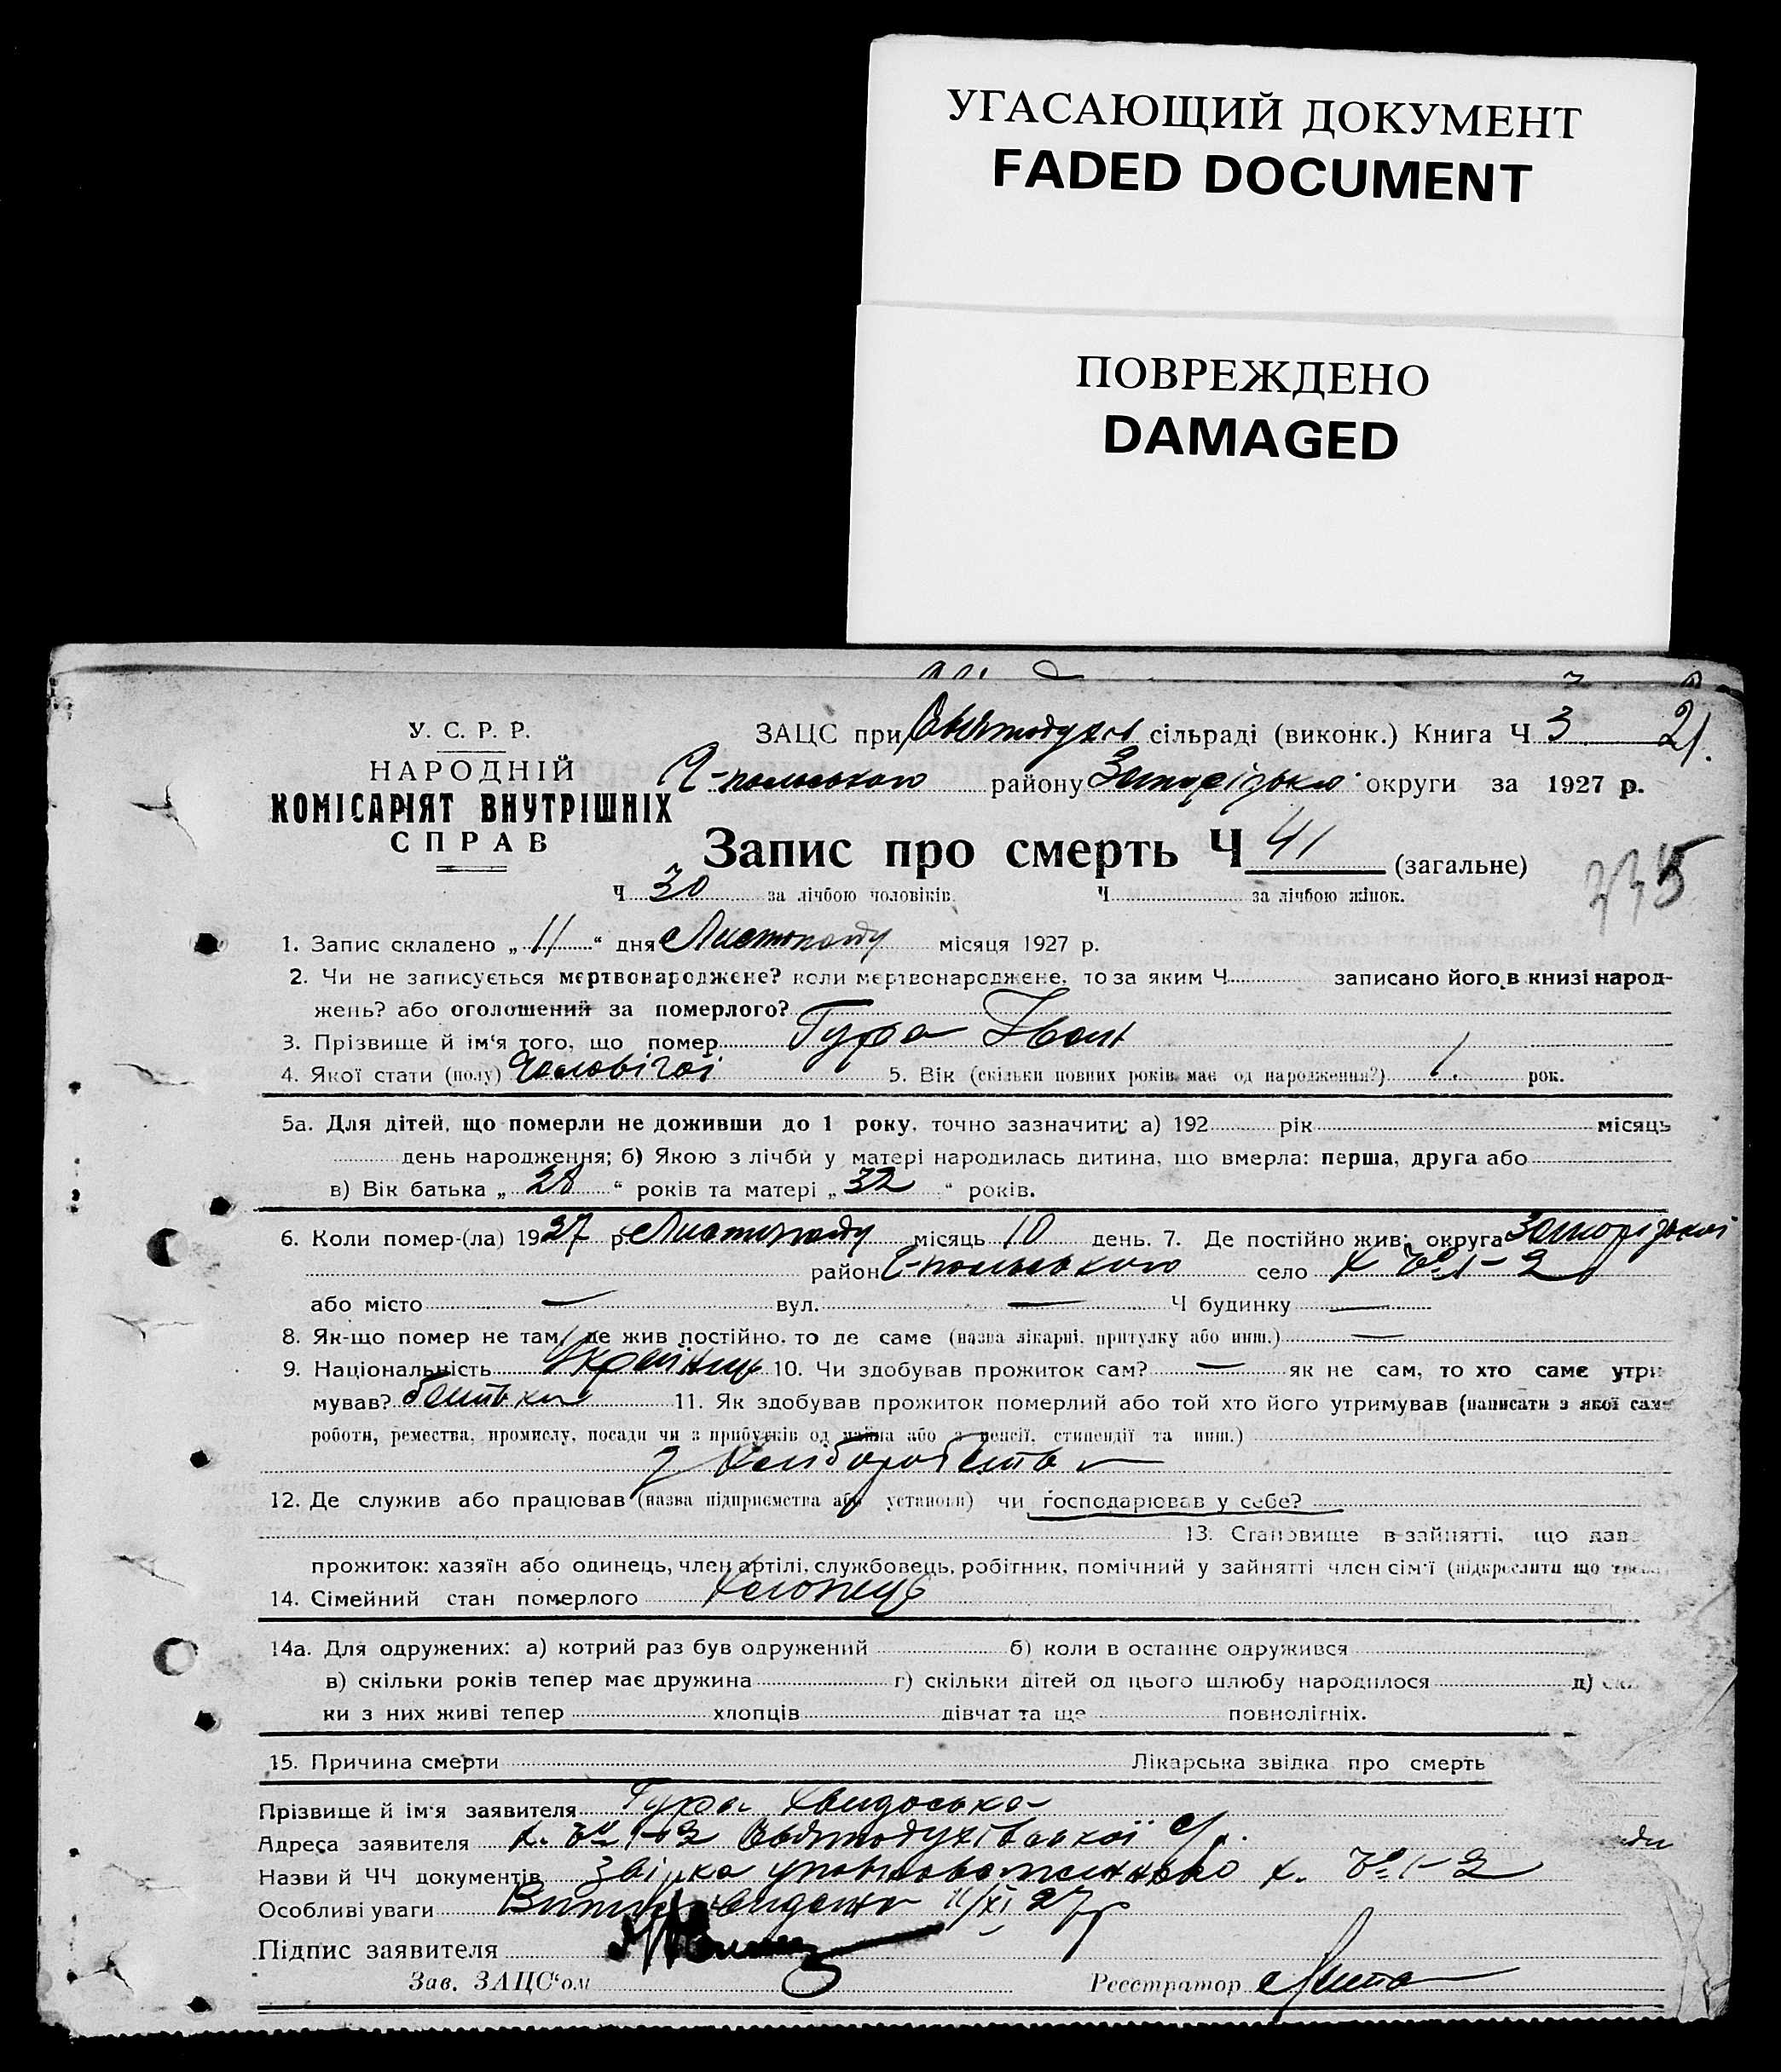 УГАСАЮЩИЙ ДОКУМЕНТ
FADED DOCUMENT
ПОВРЕЖДЕНО
DAMAGED
У. С. Р. Р.
НАРОДНІЙ
КОМІСАРІЯТ ВНУТРІШНІХ
СПРАВ
ЗАЦС при Святодухів сільраді (виконк.) Книга Ч 3 21.
Ч-польського району Запорізько округи за 1927 р.
Запис про смерть Ч 41 (загальне)
335
Ч 30 за лічбою чоловіків. Ч за лічбою жінок.
1. Запис складено „ 11 “ дня Листопаду місяця 1927 р.
2. Чи не записується мертвонароджене? коли мертвонароджене, то за яким Ч записано його в книзі народ-
жень? або оголошений за померлого?
3. Прізвище й ім'я того, що помер Гура Іван
4. Якої стати (полу) Чоловічої 5. Вік (скільки повних років має од народження?) 1. рок.
5а. Для дітей, що померли не доживши до 1 року, точно зазначити: а) 192 рік місяць
день народження; б) Якою з лічби у матері народилась дитина, що вмерла: перша, друга або
в) Вік батька „ 28 “ років та матері „ 32 “ років.
6. Коли помер-(ла) 1927 р Листопаду місяць 10 день. 7. Де постійно жив: округа Запорізької
район Ч-польського село х № 1-2
або місто — вул. — Ч будинку —
8. Як-що помер не там, де жив постійно, то де саме (назва лікарні, притулку або инш.) —
9. Національність Українець 10. Чи здобував прожиток сам? — як не сам, то хто саме утри
мував? батьки 11. Як здобував прожиток померлий або той хто його утримував (написати з якої саме
роботи, ремества, промислу, посади чи з прибутків од майна або з пенсії, стипендії та инш.)
з Хліборобства
12. Де служив або працював (назва підприємства або установи) чи господарював у себе?
13. Становище в зайнятті, що дав
прожиток: хазяїн або одинець, член артілі, службовець, робітник, помічний у зайнятті член сім'ї (підкреслити що треба
14. Сімейний стан померлого Хлопець
14а. Для одружених: а) котрий раз був одружений б) коли в останнє одружився
в) скільки років тепер має дружина г) скільки дітей од цього шлюбу народилося д) ск
ки з них живі тепер хлопців дівчат та ще повнолітніх.
15. Причина смерти Лікарська звідка про смерть
Прізвище й ім'я заявителя Гура Хвидоська
Адреса заявителя х. № 1-2 Святодухівської с/р.
Назви й ЧЧ документів Звідка уповноваженного х. № 1-2
Особливі уваги Витяг видано 11/XI 27р
Підпис заявителя
Зав. ЗАЦС'ом Реєстратор